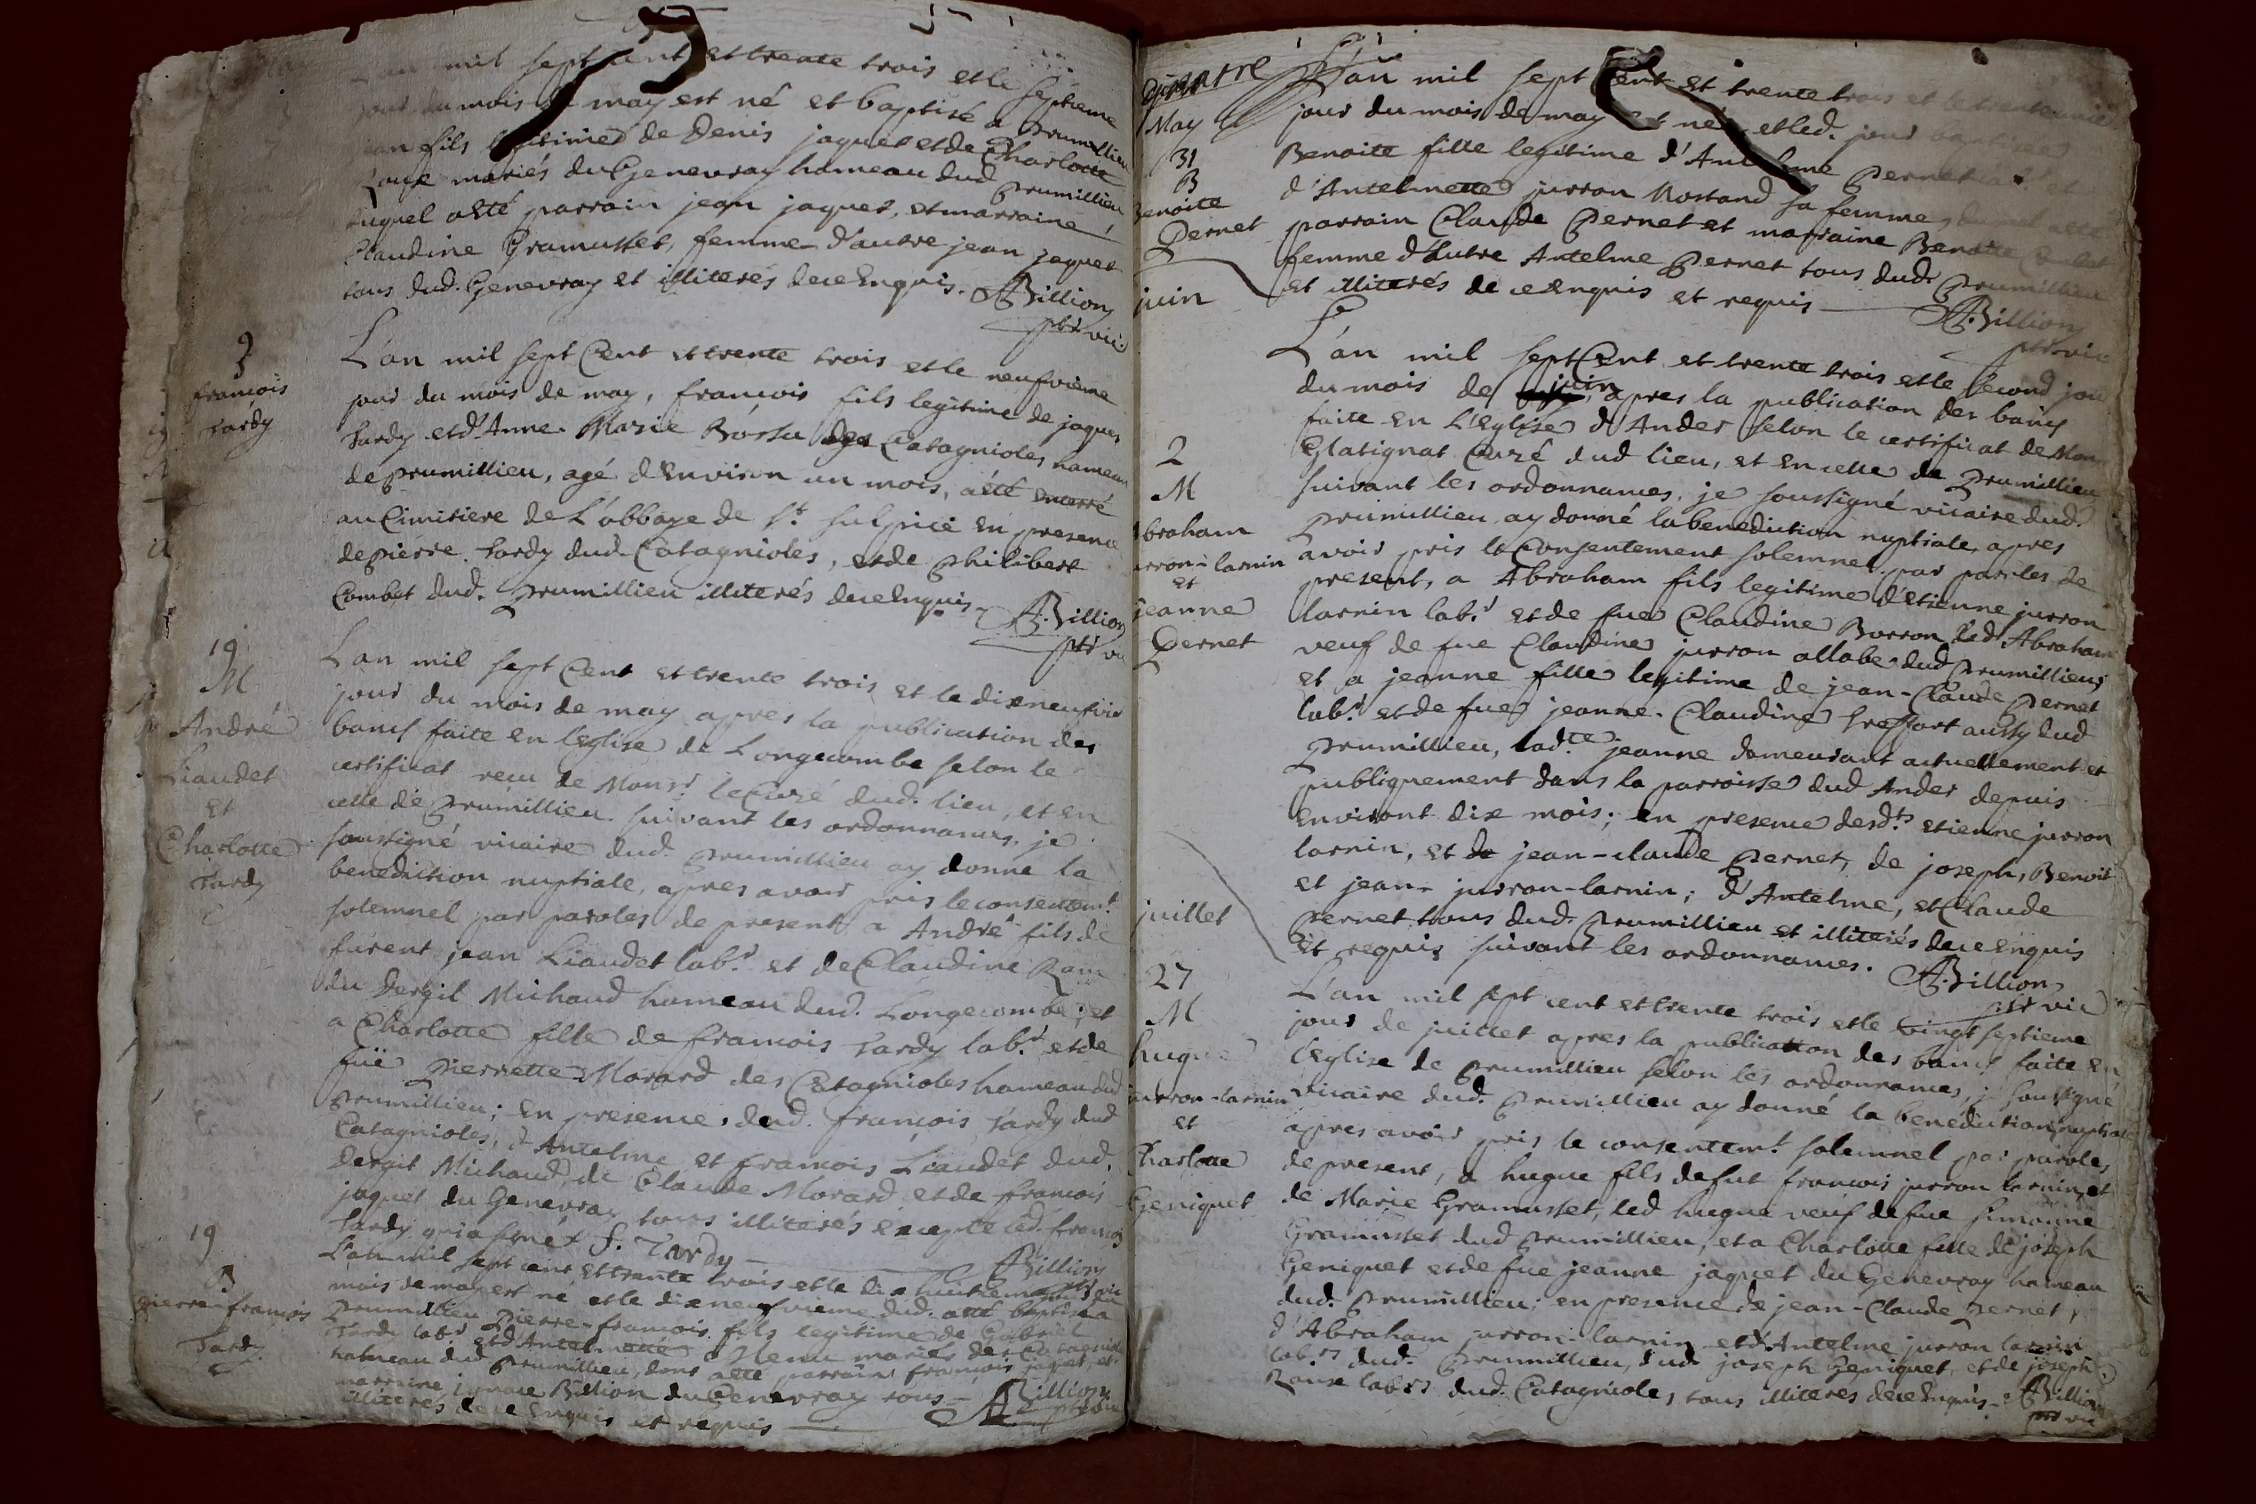 L'an mil sept cent et trente trois et le septieme
jour du mois de may est né et baptisé a prumillieu
jean fils legitime de Denis jaquet et de Charlotte
Raux mariés du Genevray hameau dud prumillieu
auquel a eté parrain jean jaquet, et marraine
Claudine Gramusset, femme d'autre jean jaquet
tous dud. Genevray et illiterés de ce Enquis. A Billion
ptr vic.
9
francois
tardy
L'an mil sept Cent et trente trois et le neufvieme
jour du mois de may, francois fils legitime de jaques
tardy et d'Anne Marie Bossu des Catagnioles hameau
de prumillieu, agé d'Environ un mois, a eté enterré
au Cimitiere de L'abbaye de st. sulpice En presence
de pierre tardy dud Catagnioles, et de philibert
Combet dud. prumillieu illiterés de ce Enquis A. Billion
ptr vic
19
M
André
Liaudet
et
Charlotte
tardy
L'an mil sept Cent et trente trois et le dixneufvie
jour du mois de may apres la publication des
bancs faite en l'eglise de Longecombe selon le
certificat recu de Monsr. le Curé dud. lieu, et en
celle de prumillieu suivant les ordonnances, je
soussigné vicaire dud. prumillieu ay donné la
benediction nuptiale, apres avoir pris le consentemt.
solemnel par paroles de present a André fils de
furent jean Liaudet labr. et de Claudine Ram
du dergit Michaud hameau dud. Longecombe; et
a Charlotte fille de francois tardy labr. et de
füe pierrette Morard des Catagnioles hameau dud
prumillieu; en presence dud. francois tardy dud
Catagnioles, d'Antelme et francois Liaudet dud.
dergit Michaud, de Claude Morard et de francois
jaquet du Genevray tous illiterés excepte led. francois
tardy qui a signé f. Tardy A Billion
ptr vic
19
B
pierre francois
tardy
L'an mil sept cent et trente trois et le dix huitieme
mois de may est né et le dixneufvieme dud. a eté baptisé a
prumillieu pierre-francois fils legitime de Gabriel
tardy labr et d'Antelmette Nemu mariés des Catagnioles
hameau dud prumillieu, dont a eté parrain francois jaquet, et
marraine ignace Billion du Genevray tous
illiterés de ce Enquis et requis A Billion ptr vic
quatre
May
31
B
Benoite
Pernet
L'an mil sept Cent et trente trois et le trente unie
jour du mois de may est née et led. jour baptisée
Benoite fille legitime d'Antelme pernet et
d'Antelmette jurron Rostand sa femme, dont a eté
parrain Claude Pernet et marraine Benoite
femme d'Autre Antelme pernet tous dud. prumillieu
et illiterés de ce Enquis et requis A. Billion
ptr vic
juin
2
M
Abraham
jurron-larnin
et
jeanne
Pernet
L'an mil sept Cent et trente trois et le second jour
du mois de juin, apres la publication des bancs
faite en L'Eglise d'Andes selon le certificat de Mon
Glatignat Curé dud lieu, et en celle de prumillieu
suivant les ordonnances, je soussigné vicaire dud.
prumillieu ay donné la benediction nuptiale, apres
avoir pris le Consentement solemnel par paroles de
present, a Abraham fils legitime d'Etienne jurron
larnin labr. et de fue Claudine Borron led. Abraham
veuf de fue Claudine jurron allabe dud prumillieu
et a jeanne fille legitime de jean-Claude pernet
labr. et de fue jeanne-Claudine treffort aussy dud
prumillieu, ladte. jeanne demeurant actuellement et
publiquement dans la parroisse dud Andes depuis
Environt dix mois; en presence desdts. etienne jurron
larnin, et de jean-claude pernet, de joseph, Benoit
et jean-jurron-larnin; d'Antelme, et Claude
pernet tous dud. prumillieu et illiterés de ce Enquis
et requis suivant les ordonnances. A. Billion
ptr vic
juillet
27
M
hugue
jurron-larnin
et
Charlotte
Geniquet
L'an mil sept cent et trente trois et le vingt septieme
jour de juillet apres la publication des bancs faite En
l'Eglise de prumillieu selon les ordonnances, je soussigné
vicaire dud. prumillieu ay donné la benediction nuptiale
apres avoir pris le consentemt. solemnel par paroles
de present, a hugue fils de fut francois jurron larnin, et
de Marie Gramusset, led hugue veuf de fue simonne
Gramusset dud prumillieu, et a Charlotte fille de joseph
Geniquet et de fue jeanne jaquet du Genevray hameau
dud. prumillieu; en presence de jean-Claude pernet,
d'Abraham jurron-larnin et d'Antelme jurron larnin
labrs. dud. prumillieu, dud joseph Geniquet, et de joseph
Raux labrs dud. Catagnioles, tous illiterés de ce Enquis. A Billion
ptr vic